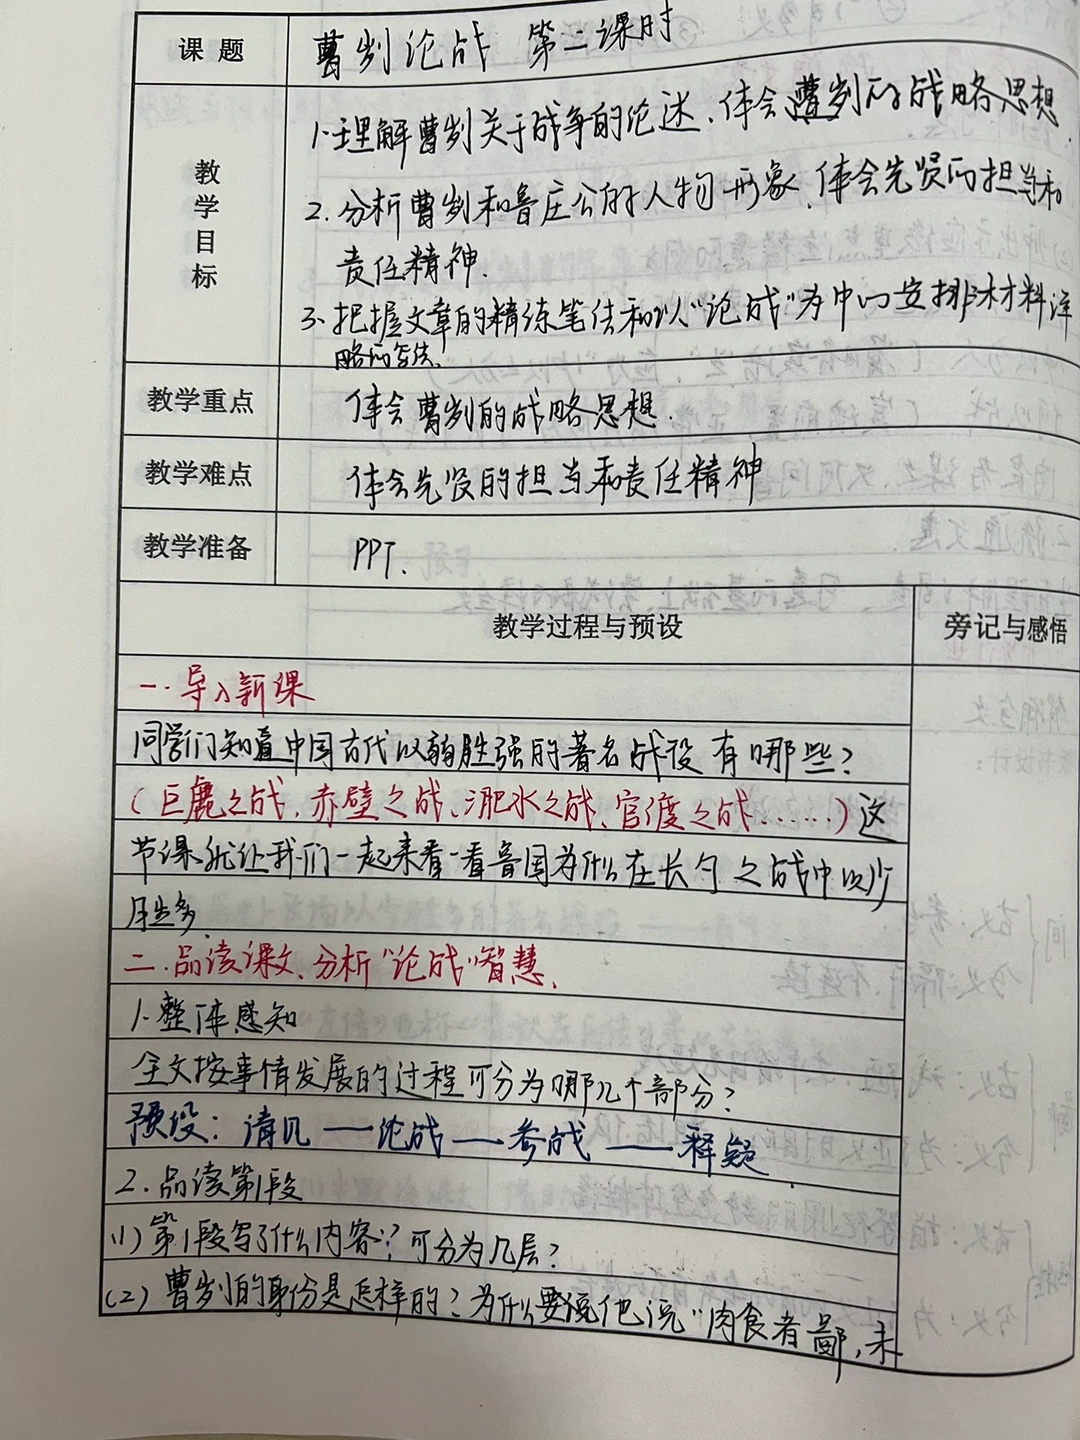 课题 曹刿论战 第二课时
教学目标
1.理解曹刿关于战争的论述、体会曹刿的战略思想.
2.分析曹刿和鲁庄公的人物形象、体会先贤的担当和
责任精神.
3.把握文章的精练笔法和以“论战”为中心安排材料详
略的写法.
教学重点 体会曹刿的战略思想.
教学难点 体会先贤的担当和责任精神
教学准备 PPT.
教学过程与预设 旁记与感悟
一.导入新课
同学们知道中国古代以弱胜强的著名战役有哪些?
(巨鹿之战、赤壁之战、淝水之战、官渡之战……)这
节课就让我们一起来看一看鲁国为什么在长勺之战中以少
胜多.
二.品读课文、分析“论战”智慧.
1.整体感知
全文按事情发展的过程可分为哪几个部分?
预设:请见——论战——参战——释疑
2.品读第1段
(1)第1段写了什么内容?可分为几层?
(2)曹刿的身份是怎样的?为什么要说他说“肉食者鄙,未